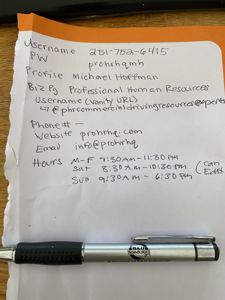 Username 251-752-6415
PW prohrhqmh
Profile Michael Hoffman
Biz Pg Professional Human Resources
Username (Vanity URL)
Phone# —
Website prohrhq.com
Email info@prohrhq
Hours M-F 7:30AM-11:30PM
Sat 8:30AM-10:30PM (can
Sun 9:30AM - 6:30PM